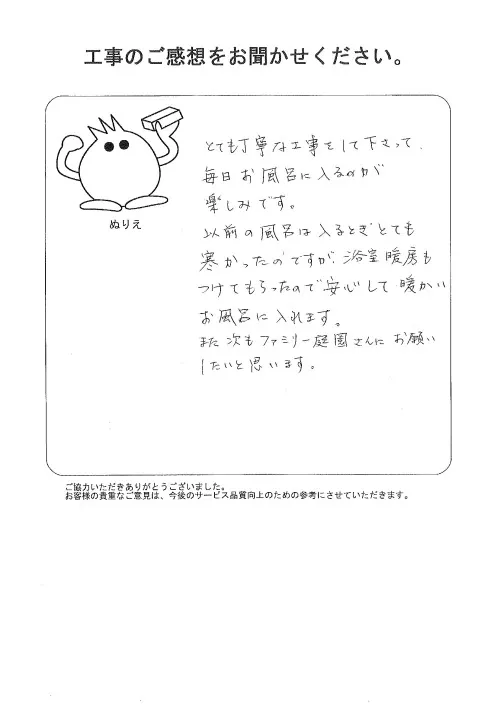 工事のご感想をお聞かせください。
ぬりえ
とても丁寧な工事をして下さって、
毎日お風呂に入るのが
楽しみです。
以前の風呂は入るときとても
寒かったのですが、浴室暖房も
つけてもらったので安心して暖かい
お風呂に入れます。
また次もファミリー庭園さんにお願い
したいと思います。
ご協力いただきありがとうございました。
お客様の貴重なご意見は、今後のサービス品質向上のための参考にさせていただきます。